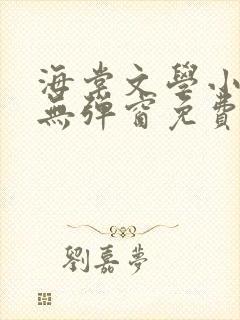 海棠文學小
無彈窗免費
劉嘉夢